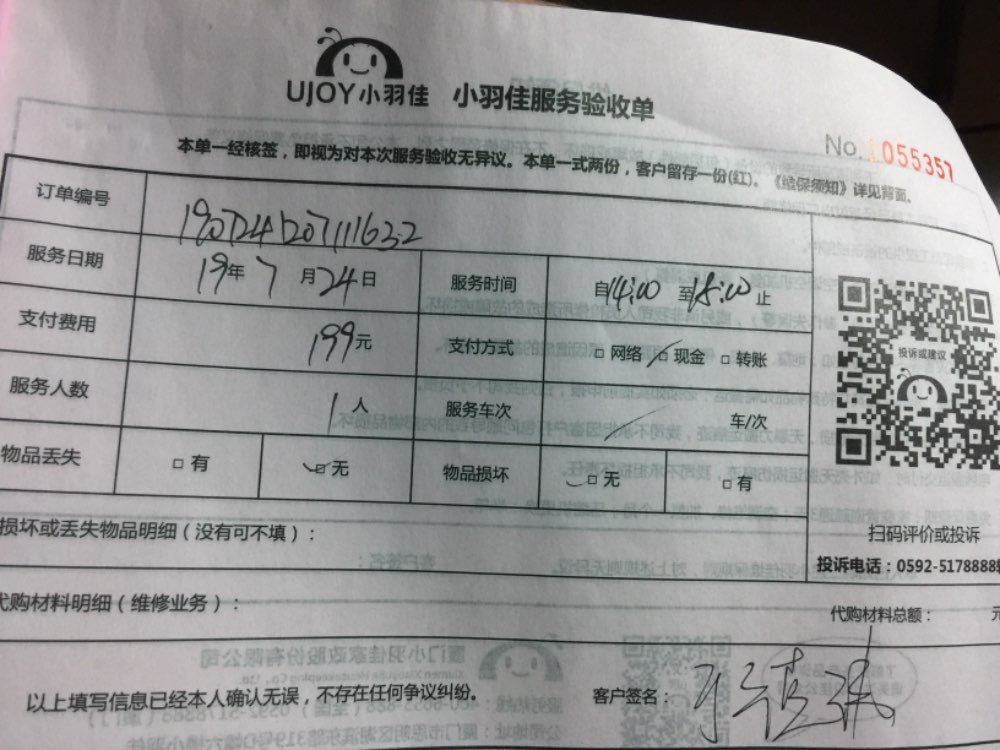 UJOY小羽佳 小羽佳服务验收单
No.1055357
本单一经核签，即视为对本次服务验收无异议。本单一式两份，客户留存一份(红)。《维保须知》详见背面。
订单编号
服务日期 19年7月24日 服务时间 自14:00至18:00止
支付费用 199元 支付方式 □网络 □现金 □转账
服务人数 1人 服务车次 车/次
物品丢失 □有 □无 物品损坏 □无 □有
投诉或建议
扫码评价或投诉
损坏或丢失物品明细（没有可不填）：
投诉电话：0592-5178888转
代购材料明细（维修业务）：
代购材料总额： 元
以上填写信息已经本人确认无误，不存在任何争议纠纷。 客户签名：